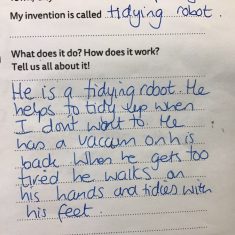 My invention is called tidying robot.
What does it do? How does it work?
Tell us all about it!
He is a tidying robot. He
helps to tidy up when
I dont want to. He
has a vaccum on his
back. When he gets too
tired he walks on
his hands and tidies with
his feet.